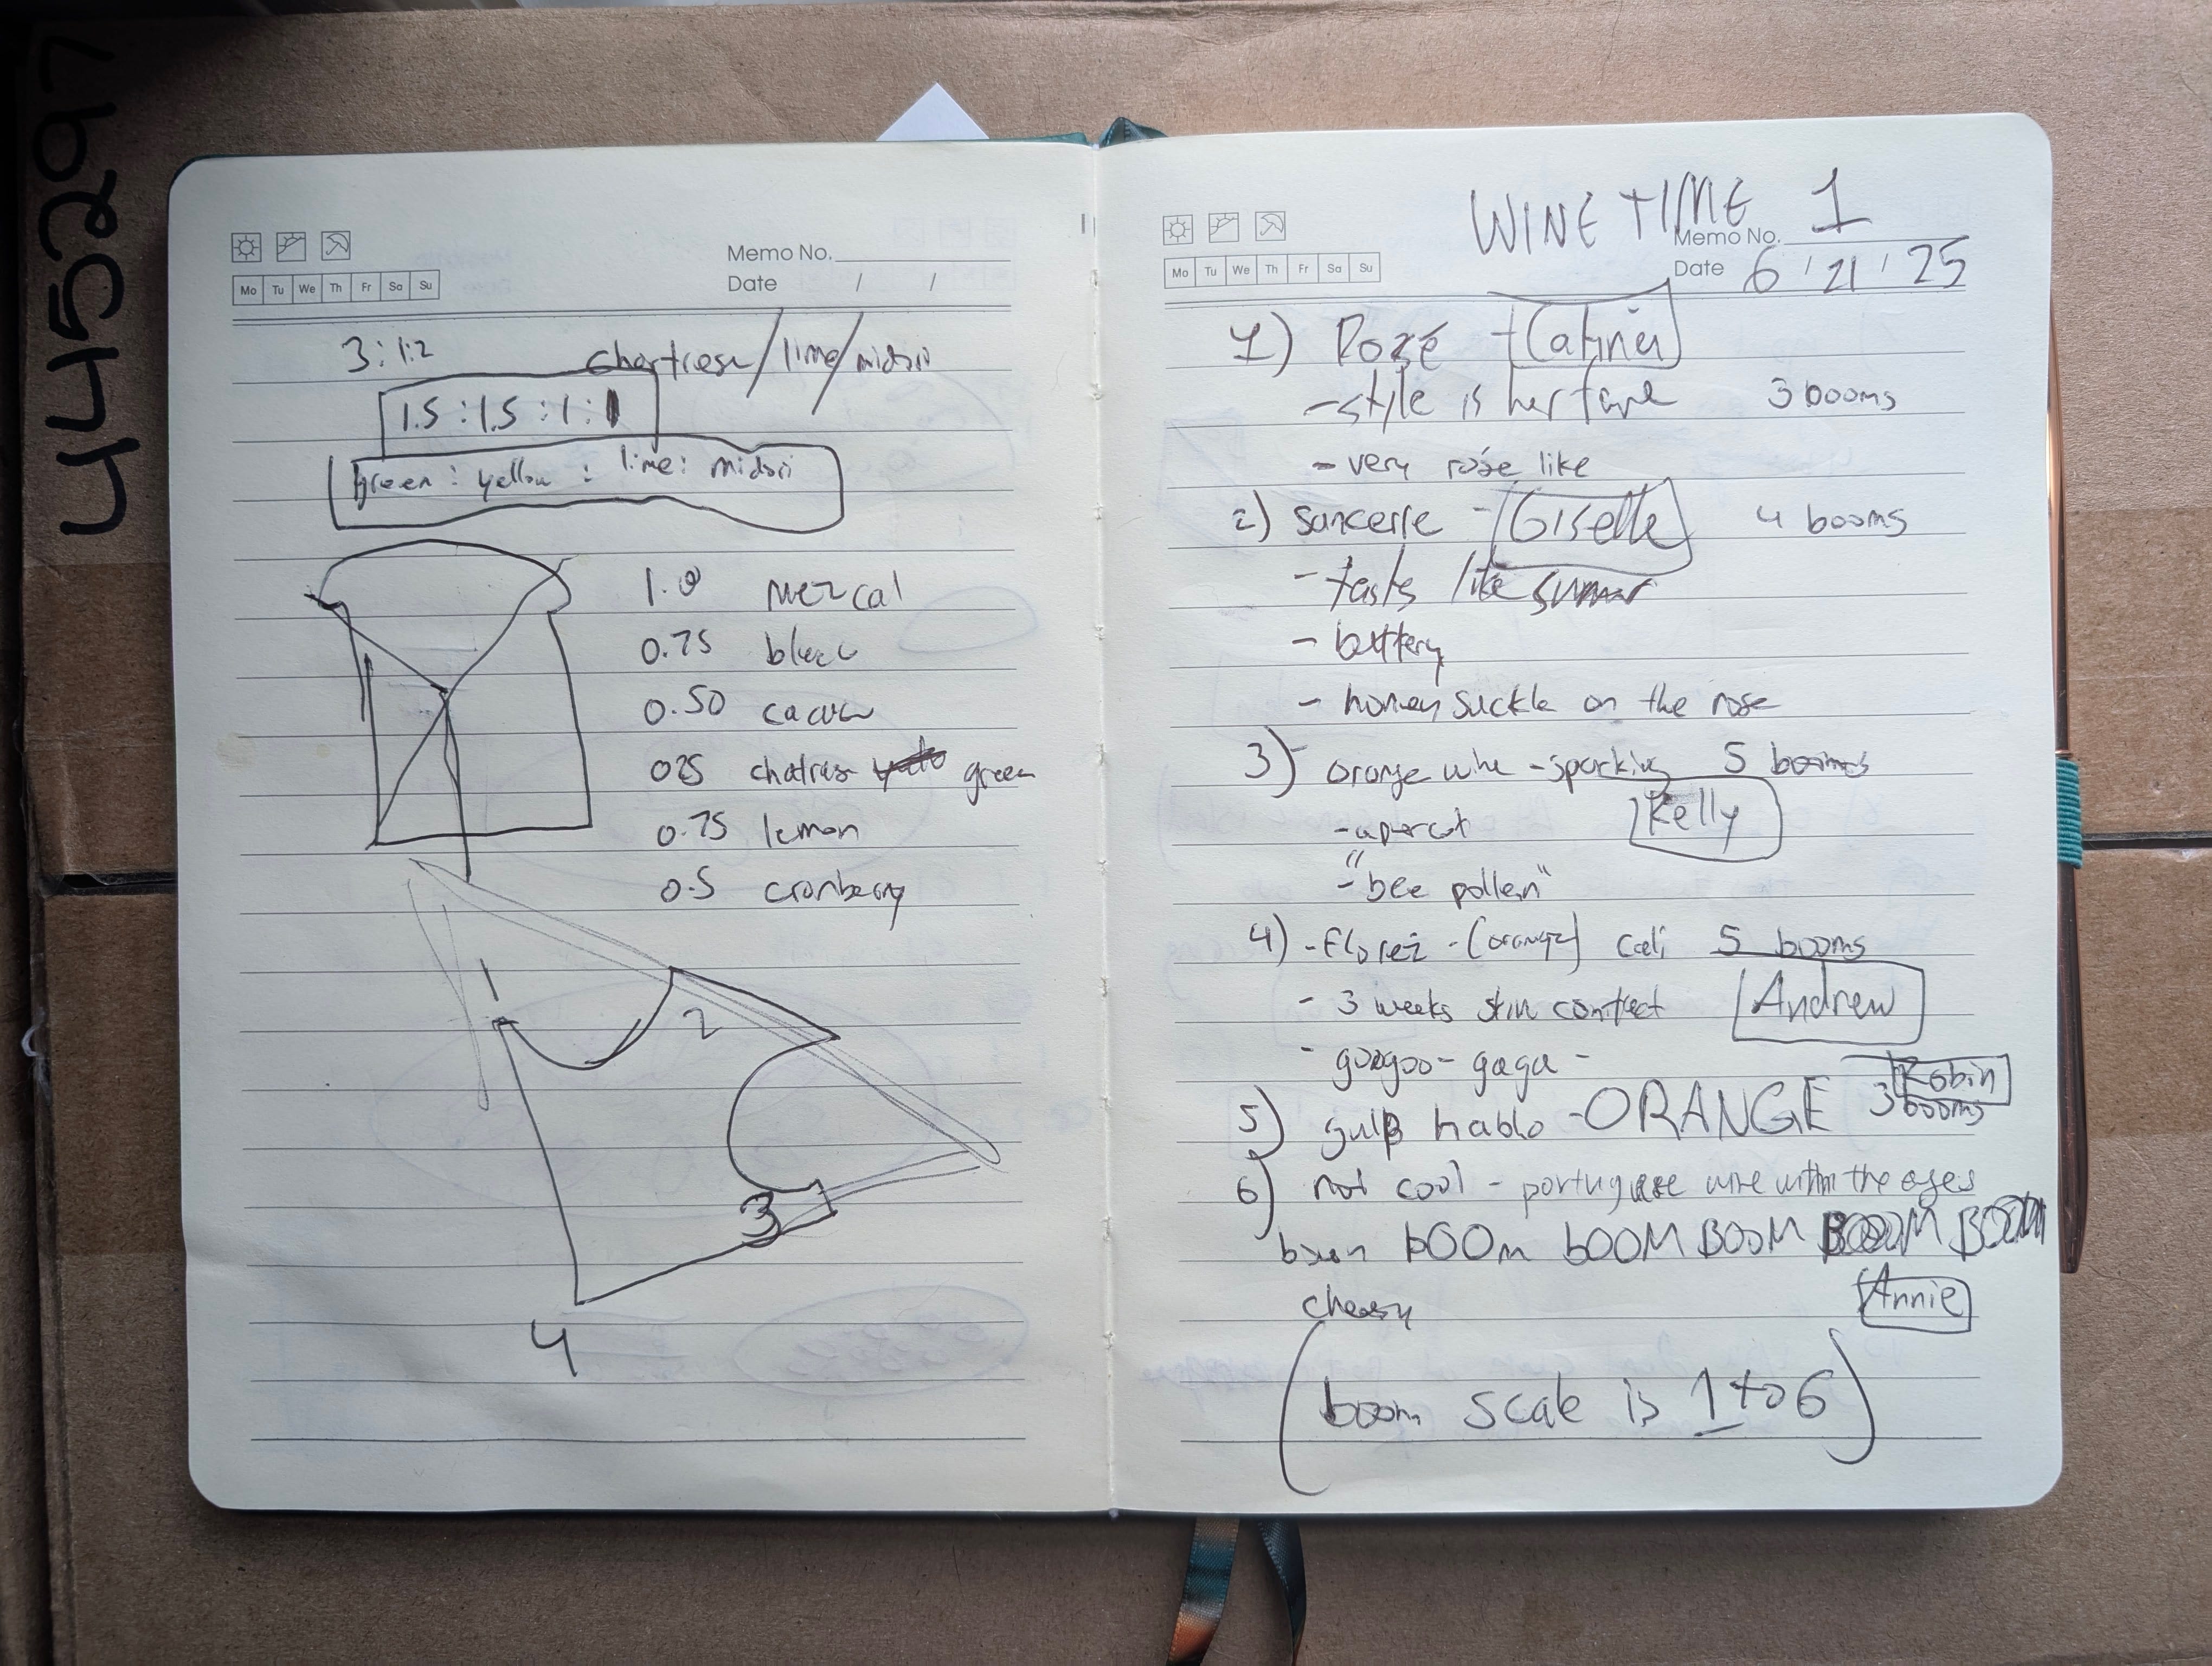 445297
Mo Tu We Th Fr Sa Su
Memo No.
Date / /
3:1:2
chartreuse/lime/midori
1.5:1.5:1:1
green: yellow: lime: midori
1.0 mezcal
0.75
0.50
025 green
0.75 lemon
0.5 cranberry
1
2
3
4
WINE TIME 1
Memo No.
Mo Tu We Th Fr Sa Su
Date 6/21/25
1) Rosé -
- style is her 3 booms
- very rosé like
2) Sancerre - Giselle 4 booms
- tasts like summer
- buttery
- honey suckle on the nose
3) orange wine - sparking 5 booms
Kelly
- apercot
- "bee pollen"
4) - Florez - (orange) cali 5 booms
- 3 weeks skin contact Andrew
- googoo-gaga -
Robin
5) gulp hablo - ORANGE 3 booms
6) not cool - portuguese wine within the ages
boom bOOm bOOM BOOM BOOM BOOM
cheesy Annie
(boom scale is 1 to 6)